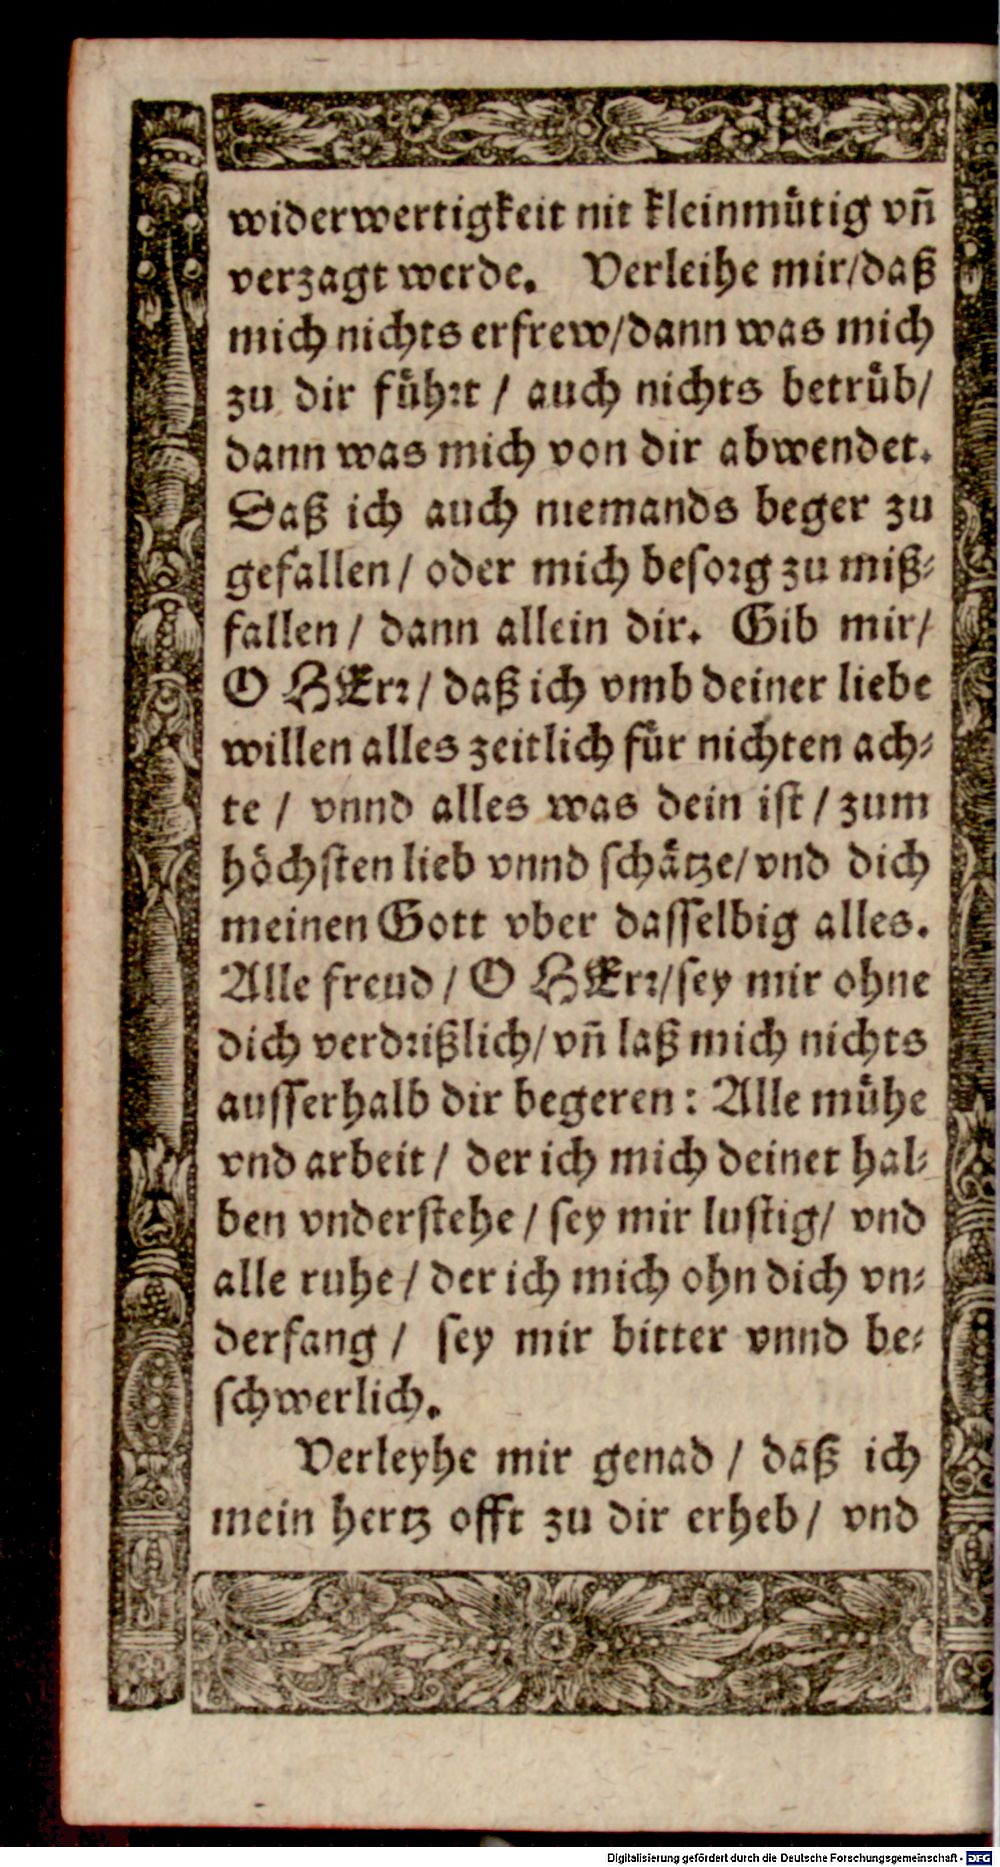 widerwertigkeit nit kleinmuͤtig vñ
verzagt werde. Verleihe mir/daß
mich nichts erfrew/dann was mich
zu dir fuͤhꝛt / auch nichts betruͤb/
dann was mich von dir abwendet.
Daß ich auch niemands beger zu
gefallen / oder mich besoꝛg zu miß⸗
fallen / dann allein dir. Gib mir/
O HErꝛ / daß ich vmb deiner liebe
willen alles zeitlich fuͤr nichten ach⸗
te / vnnd alles was dein ist / zum
hoͤchsten lieb vnnd schaͤtze/vnd dich
meinen Gott vber dasselbig alles.
Alle freud / O HErꝛ/sey mir ohne
dich verdꝛißlich/ vñ laß mich nichts
ausserhalb dir begeren : Alle muͤhe
vnd arbeit / der ich mich deinet hal⸗
ben vnderstehe / sey mir lustig/ vnd
alle ruhe / der ich mich ohn dich vn⸗
derfang / sey mir bitter vnnd be⸗
schwerlich.
Verleyhe mir genad / daß ich
mein hertz offt zu dir erheb / vnd
Digitalisierung gefördert durch die Deutsche Forschungsgemeinschaft - DFG